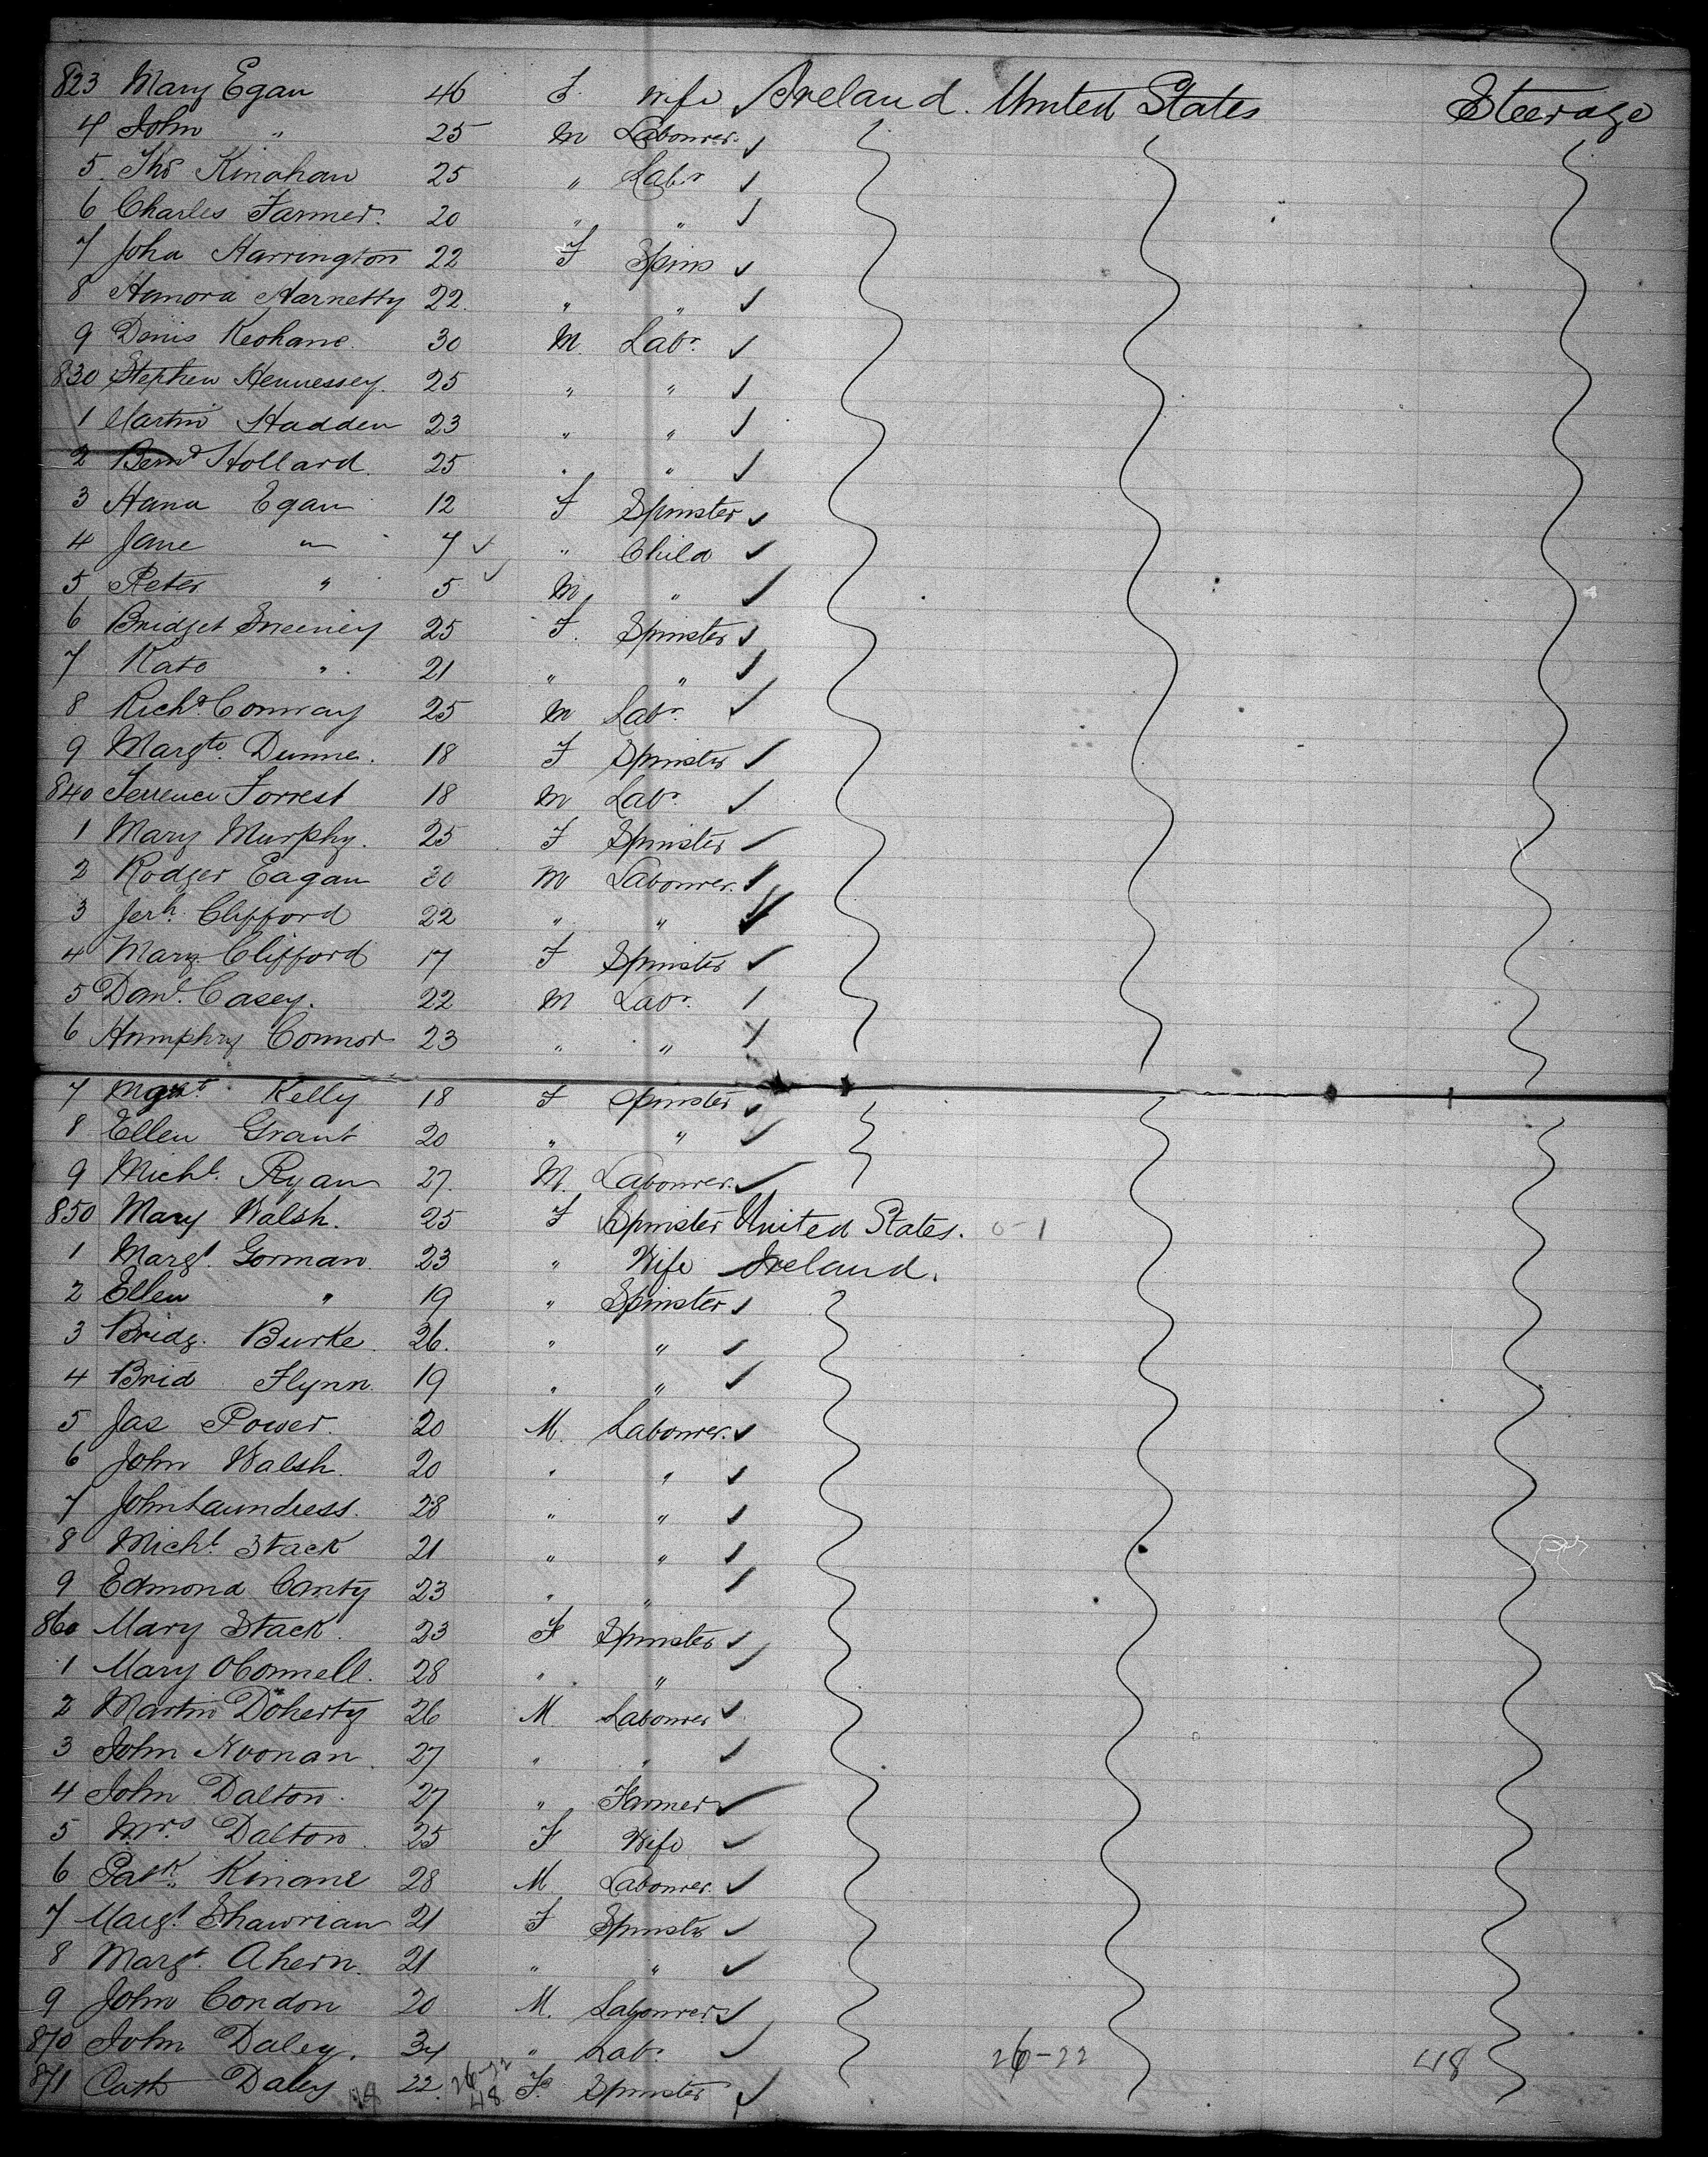 823 Mary Egan 46 F. Wife Ireland. United States Steerage
4 John " 25 M Labourer.
5. Thos Kinahan 25 " Labr
6 Charles Farmer. 20 " "
7 Joha Harrington 22 F Spins
8 Honora Harnetty 22. " "
9 Denis Keohane. 30 M. Labr.
830 Stephen Hennessey. 25 " "
1 Martin Hadden 23 " "
2 Bernd Hollard. 25 " "
3 Hana Egan 12 F Spinster
4 Jane " 7 " Child
5 Peter " 5 M "
6 Bridget Sweeney 25 F. Spinster
7 Kate " 21 " "
8 Richd. Conway 25 M Labr.
9 Margte. Dunne. 18 F Spinster
840 Terrence Forrest 18 M Labr.
1 Mary Murphy. 25 F Spinster
2 Rodger Eagan 30 M Labourer.
3 Jerh. Clifford 22 " "
4 Mary Clifford 17 F Spinster
5 Danl. Casey. 22 M Labr.
6 Humphry Connor 23 " "
7 Margt. Kelly 18 F Spinster
8 Ellen Grant 20 " "
9 Michl. Ryan 27. M. Labourer.
850 Mary Walsh. 25 F Spinster United States. 0-1
1 Margt. Gorman 23 " Wife Ireland.
2 Ellen " 19 " Spinster
3 Bridg. Burke 26. " "
4 Brid Flynn 19 " "
5 Jas Power. 20 M. Labourer.
6 John Walsh. 20 " "
7 John Laundress. 28 " "
8 Michl. Stack 21 " "
9 Edmond Canty 23 " "
860 Mary Stack 23 F Spinster
1 Mary OConnell. 28 " "
2 Martin Doherty 26 M. Labourer
3 John Noonan 27 " "
4 John Dalton. 27 " Farmer
5 Mrs. Dalton 25 F Wife
6 Patk. Kinane 28 M Labourer.
7 Margt. Shawrian 21 F Spinster
8 Margt. Ahern. 21 " "
9 John Condon 20 M. Labourer
870 John Daley. 34 " Labr. 26-22 48
871 Cath Daley 48 22. 26-22 48. F. Spinster